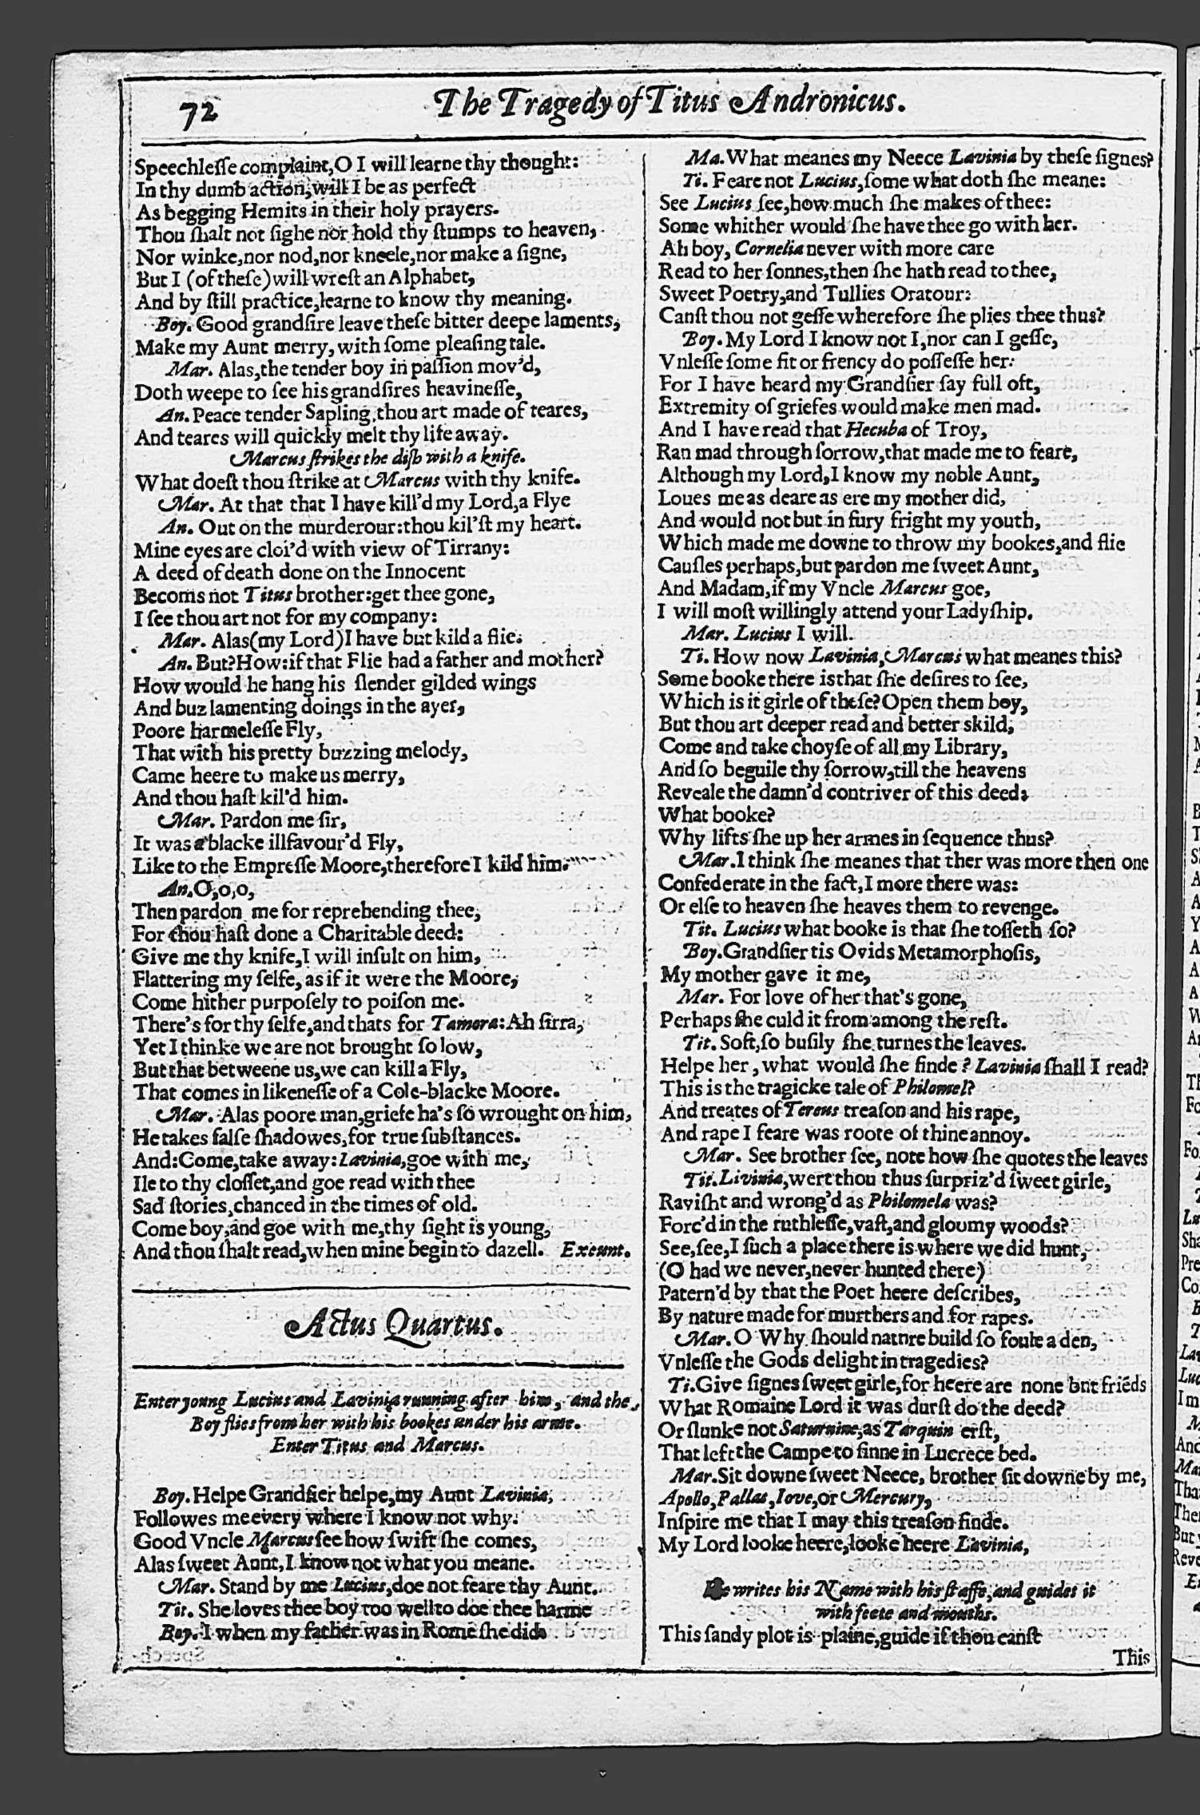 72
The Tragedy of Titus Andronicus.
Speechlesse complaint,O I will learne thy thought:
In thy dumb action,will I be as perfect
As begging Hemits in their holy prayers.
Thou ſhalt not ſighe nor hold thy ſtumps to heaven,
Nor winke,nor nod,nor kneele,nor make a ſigne,
But I (of theſe)will wreſt an Alphabet,
And by ſtill practice,learne to know thy meaning.
Boy. Good grandſire leave theſe bitter deepe laments,
Make my Aunt merry,with ſome pleaſing tale.
Mar. Alas,the tender boy in paſſion mov'd,
Doth weepe to ſee his grandſires heavineſſe,
An. Peace tender Sapling,thou art made of teares,
And teares will quickly melt thy life away.
Marcus ſtrikes the diſh with a knife.
What doeſt thou ſtrike at Marcus with thy knife.
Mar. At that that I have kill'd my Lord,a Flye
An. Out on the murderour:thou kil'ſt my heart.
Mine eyes are cloi'd with view of Tirrany:
A deed of death done on the Innocent
Becoms not Titus brother:get thee gone,
I ſee thou art not for my company:
Mar. Alas(my Lord)I have but kild a flie.
An. But?How:if that Flie had a father and mother?
How would he hang his ſlender gilded wings
And buz lamenting doings in the ayer,
Poore harmeleſſe Fly,
That with his pretty buzzing melody,
Came heere to make us merry,
And thou haſt kil'd him.
Mar. Pardon me ſir,
It was a blacke illfavour'd Fly,
Like to the Empreſſe Moore,therefore I kild him.
An.O,o,o,
Then pardon me for reprehending thee,
For thou haſt done a Charitable deed:
Give me thy knife,I will inſult on him,
Flattering my ſelfe,as if it were the Moore,
Come hither purpoſely to poiſon me.
There's for thy ſelfe,and thats for Tamora:Ah ſirra,
Yet I thinke we are not brought ſo low,
But that betweene us,we can kill a Fly,
That comes in likeneſſe of a Cole-blacke Moore.
Mar. Alas poore man,griefe ha's ſo wrought on him,
He takes falſe ſhadowes,for true ſubſtances.
And:Come,take away:Lavinia,goe with me,
Ile to thy cloſſet,and goe read with thee
Sad ſtories,chanced in the times of old.
Come boy,and goe with me,thy ſight is young,
And thou ſhalt read,when mine begin to dazell. Exeunt.
Actus Quartus.
Enter young Lucius and Lavinia running after him, and the
Boy flies from her with his bookes under his arme.
Enter Titus and Marcus.
Boy. Helpe Grandſier helpe,my Aunt Lavinia,
Followes me every where I know not why.
Good Vncle Marcus ſee how ſwift ſhe comes,
Alas ſweet Aunt,I know not what you meane.
Mar. Stand by me Lucius,doe not feare thy Aunt.
Tit. She loves thee boy too well to doe thee harme
Boy. I when my father was in Rome ſhe did.
Ma.What meanes my Neece Lavinia by theſe ſignes?
Ti. Feare not Lucius,ſome what doth ſhe meane:
See Lucius ſee,how much ſhe makes of thee:
Some whither would ſhe have thee go with her.
Ah boy, Cornelia never with more care
Read to her ſonnes,then ſhe hath read to thee,
Sweet Poetry,and Tullies Oratour:
Canſt thou not geſſe wherefore ſhe plies thee thus?
Boy. My Lord I know not I,nor can I geſſe,
Vnleſſe ſome fit or frency do poſſeſſe her:
For I have heard my Grandſier ſay full oft,
Extremity of griefes would make men mad.
And I have read that Hecuba of Troy,
Ran mad through ſorrow,that made me to feare,
Although my Lord,I know my noble Aunt,
Loues me as deare as ere my mother did,
And would not but in fury fright my youth,
Which made me downe to throw my bookes,and flie
Cauſles perhaps,but pardon me ſweet Aunt,
And Madam,if my Vncle Marcus goe,
I will moſt willingly attend your Ladyſhip.
Mar. Lucius I will.
Ti. How now Lavinia,Marcus what meanes this?
Some booke there is that ſhe deſires to ſee,
Which is it girle of theſe?Open them boy,
But thou art deeper read and better skild,
Come and take choyſe of all my Library,
And ſo beguile thy ſorrow,till the heavens
Reveale the damn'd contriver of this deed.
What booke?
Why lifts ſhe up her armes in ſequence thus?
Mar.I think ſhe meanes that ther was more then one
Confederate in the fact,I more there was:
Or elſe to heaven ſhe heaves them to revenge.
Tit. Lucius what booke is that ſhe toſſeth ſo?
Boy.Grandſier tis Ovids Metamorphoſis,
My mother gave it me,
Mar. For love of her that's gone,
Perhaps ſhe culd it from among the reſt.
Tit. Soft,ſo buſily ſhe turnes the leaves.
Helpe her, what would ſhe finde? Lavinia ſhall I read?
This is the tragicke tale of Philomel?
And treates of Tereus treaſon and his rape,
And rape I feare was roote of thine annoy.
Mar. See brother ſee, note how ſhe quotes the leaves
Tit.Livinia,wert thou thus ſurpriz'd ſweet girle,
Raviſht and wrong'd as Philomela was?
Forc'd in the ruthleſſe,vaſt,and gloumy woods?
See,ſee,I ſuch a place there is where we did hunt,
(O had we never,never hunted there)
Patern'd by that the Poet heere deſcribes,
By nature made for murthers and for rapes.
Mar.O Why ſhould natnre build ſo foule a den,
Vnleſſe the Gods delight in tragedies?
Ti.Give ſignes ſweet girle,for heere are none bnt friẽds
What Romaine Lord it was durſt do the deed?
Or ſlunke not Saturnine,as Tarquin erſt,
That left the Campe to ſinne in Lucrece bed.
Mar.Sit downe ſweet Neece, brother ſit downe by me,
Apollo,Pallas,Iove,or Mercury,
Inſpire me that I may this treaſon finde.
My Lord looke heere,looke heere Lavinia,
He writes his Name with his ſtaffe,and guides it
with feete and mouths.
This ſandy plot is plaine,guide if thou canſt
This